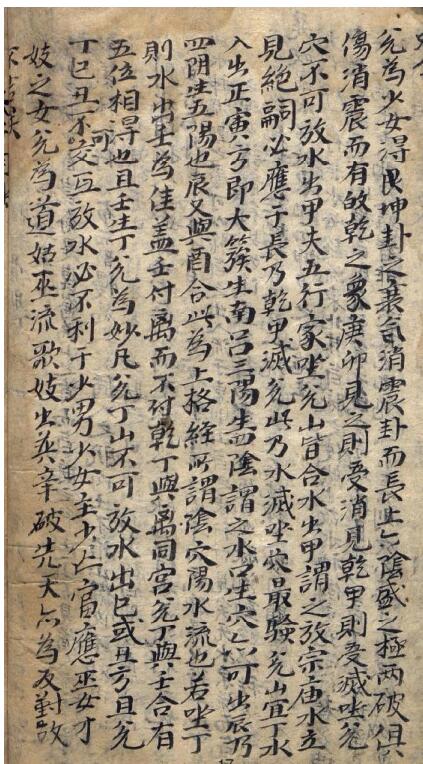 兊為少女得艮坤卦之衰氣消震卦而長上六陰盛之極兩破俱
傷消震而有敀乾之象庚卯見之則受消見乾甲則受滅坐兊
穴不可放水出甲夫五行家坐兊山皆合水出甲謂之放宗庙水立
見絶嗣必應于長乃乾甲滅兊此乃水滅坐穴最騐兊山宜丁水
入出正寅六亐即大簇生南吕三陽生四陰謂之水口生穴亦可出辰乃
四阴生五陽也辰又與酉合此為上格經所謂陰穴陽水流也若坐丁
則水出壬為佳盖壬付离而不付乾丁與离同宫兊丁與壬合有
五位相得也且壬生丁兊為妙凡兊丁山不可放水出巳或丑方且兊
丁巳丑不交互可放水必不利于少男少女主少亡富應巫女才
妓之女兊為道姑巫流歌妓出英辛破先天亦為反對故